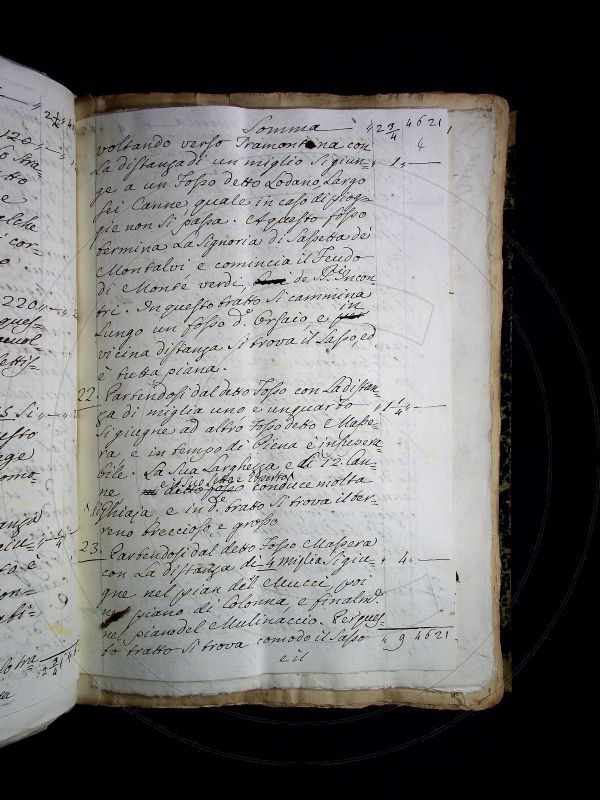 Somma — " 2 3/4 4621
voltando verso Tramontana con 4
La distanza di un miglio Si giun- " 1 " —
ge a un Fosso detto Lodano, Largo
sei Canne quale in caso di piog-
gie non Si passa. A questo fosso
termina La Signoria di Sassetta de
Montalvi e comincia il Feudo
di Monte verdi, de SS.ri Incon-
tri. In questo tratto Si cammina
Lungo un fosso d.o Orsaio e in
vicina distanza Si trova il Sasso, ed
è tutta piana.
22. Partendosi dal detto Fosso con La distan-
za di miglia uno e un quarto — " 1 1/4 " —
Si giugne ad altro Fosso detto Masse-
ra e in tempo di Piena è insupera-
bile. La Sua Larghezza è di 12 Can-
ne e il Suo Letto
detto fosso conduce molta
Ghiaja e in d.o tratto Si trova il ter-
reno breccioso, e grosso
23. Partendosi dal detto Fosso Massera
con La distanza di 4 miglia Si giu- " 4 " —
gne nel pian dell Mucci, poi
nel piano di Colonna, e finalm.e
nel piano del Mulinaccio. Per ques-
to tratto Si trova comodo il Sasso " 9 4621
e il
120
220